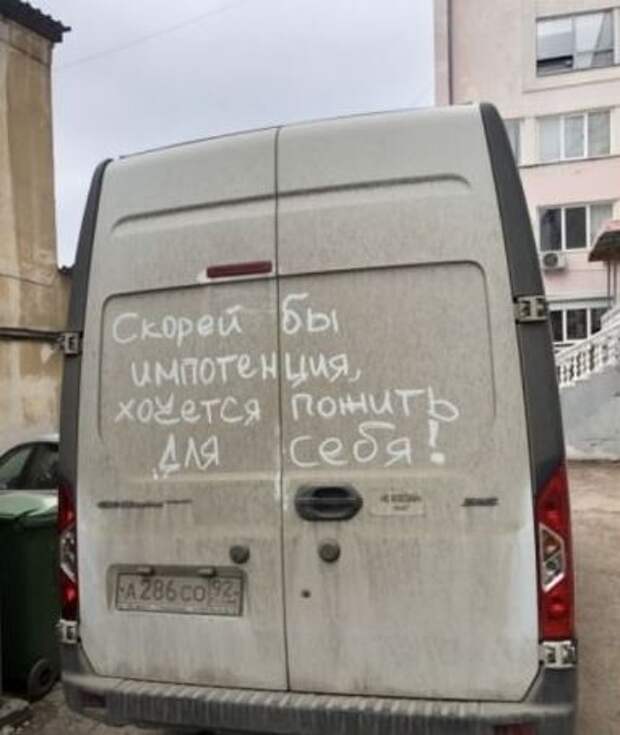 Скорей бы
импотенция,
хочется пожить
для себя!
А286СО 92